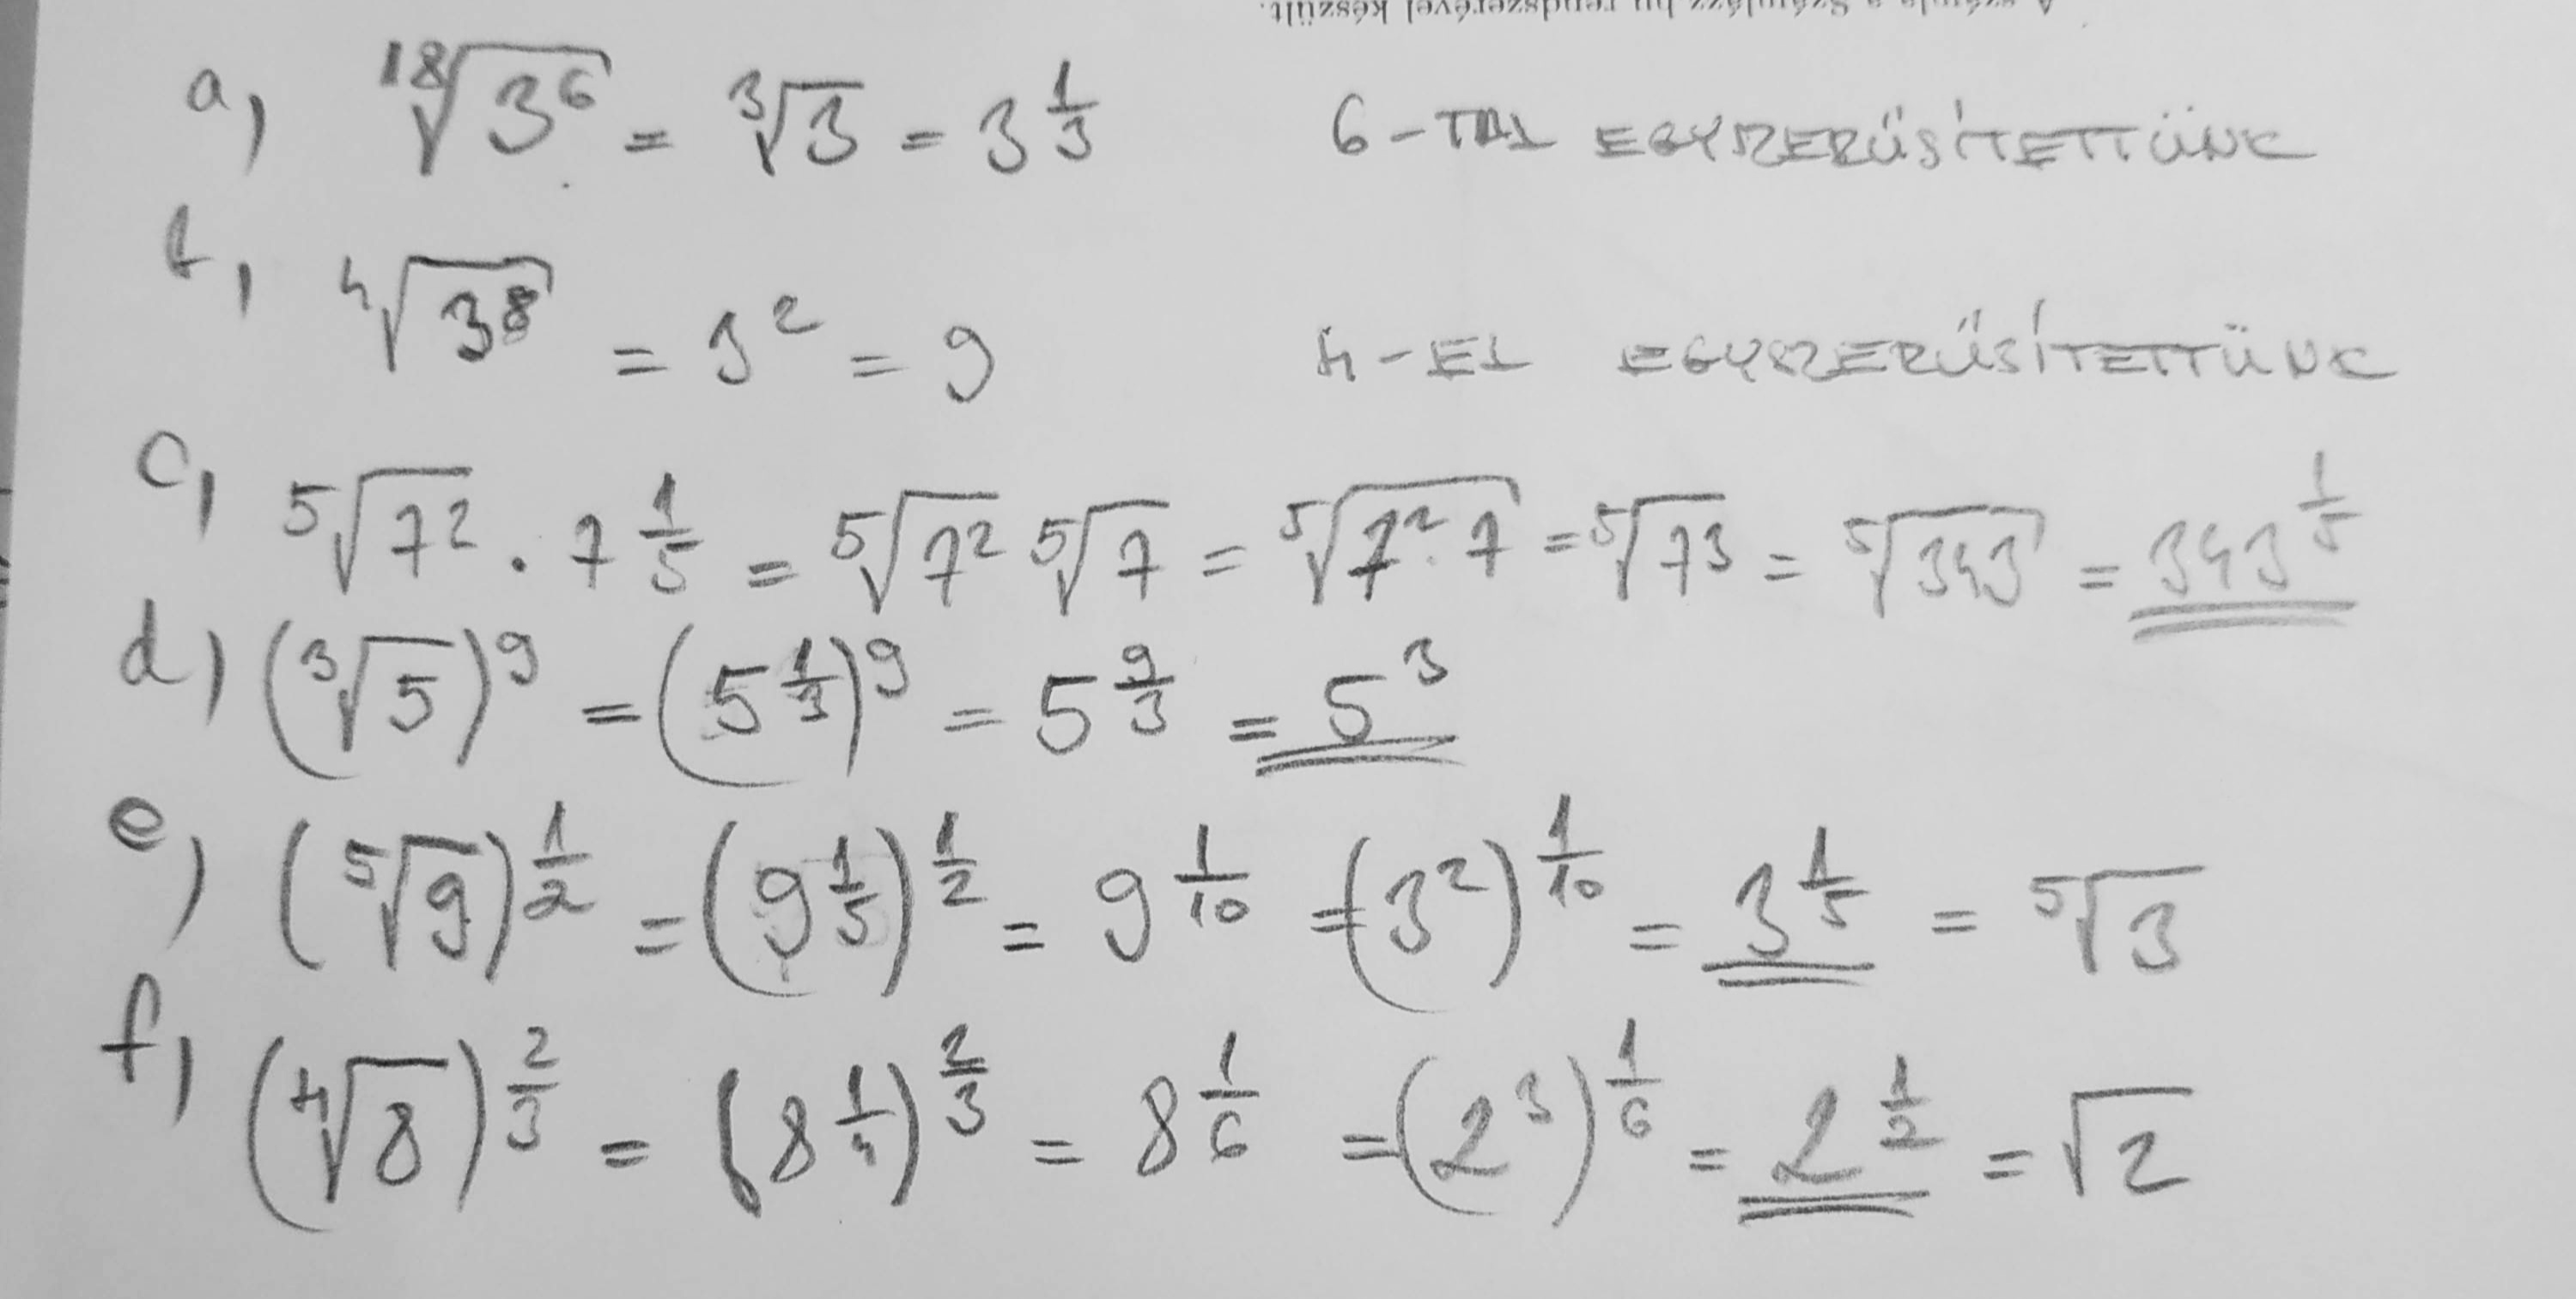 A számla a Számlázz.hu rendszerével készült.
a, ¹⁸√3⁶ = ³√3 = 3^(1/3) 6-TAL EGYSZERŰSÍTETTÜNK
b, ⁴√3⁸ = 3² = 9 4-EL EGYSZERŰSÍTETTÜNK
c, ⁵√7² · 7^(1/5) = ⁵√7² ⁵√7 = ⁵√(7²·7) = ⁵√7³ = ⁵√343 = 343^(1/5)
d) (³√5)⁹ = (5^(1/3))⁹ = 5^(9/3) = 5³
e) (⁵√9)^(1/2) = (9^(1/5))^(1/2) = 9^(1/10) = (3²)^(1/10) = 3^(1/5) = ⁵√3
f, (⁴√8)^(2/3) = (8^(1/4))^(2/3) = 8^(1/6) = (2³)^(1/6) = 2^(1/2) = √2